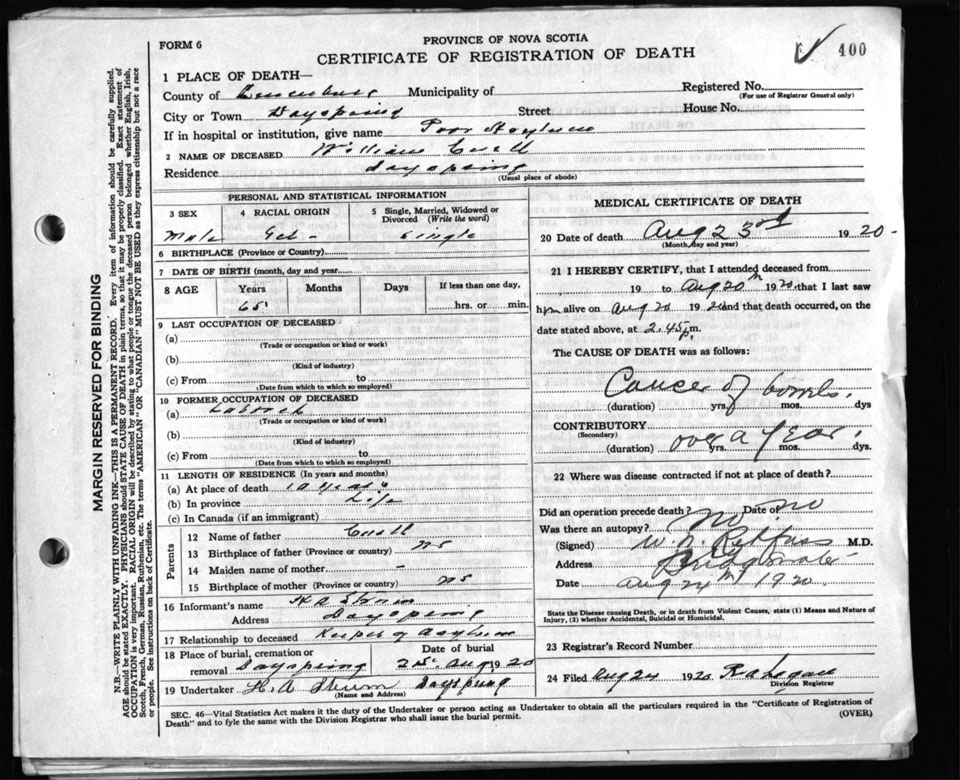 FORM 6
PROVINCE OF NOVA SCOTIA
CERTIFICATE OF REGISTRATION OF DEATH
400
MARGIN RESERVED FOR BINDING
N.B.—WRITE PLAINLY WITH UNFADING INK—THIS IS A PERMANENT RECORD. Every item of information should be carefully supplied.
AGE should be stated EXACTLY. PHYSICIANS should STATE CAUSE OF DEATH in plain terms, so that it may be properly classified. Exact statement of
OCCUPATION is very important. RACIAL ORIGIN will be described by stating to what people or tongue the deceased person belonged whether English, Irish,
Scotch, French, German, Russian, Ruthenian, etc. The terms "AMERICAN" OR "CANADIAN" MUST NOT BE USED as they express citizenship but not a race
or people. See instructions on back of Certificate.
1 PLACE OF DEATH—
County of Lunenburg Municipality of Registered No.
(For use of Registrar General only)
City or Town Dayspring Street House No.
If in hospital or institution, give name Poor Asylum
2 NAME OF DECEASED William
Residence Dayspring
(Usual place of abode)
PERSONAL AND STATISTICAL INFORMATION
3 SEX 4 RACIAL ORIGIN 5 Single, Married, Widowed or
Divorced (Write the word)
Male Single
6 BIRTHPLACE (Province or Country)
7 DATE OF BIRTH (month, day and year)
8 AGE Years Months Days If less than one day,
65 hrs. or min.
9 LAST OCCUPATION OF DECEASED
(a)
(Trade or occupation or kind or work)
(b)
(Kind of industry)
(c) From to
(Date from which to which so employed)
10 FORMER OCCUPATION OF DECEASED
(a)
(Trade or occupation or kind of work)
(b)
(Kind of industry)
(c) From to
(Date from which to which so employed)
11 LENGTH OF RESIDENCE (In years and months)
(a) At place of death 10 years
(b) In province Life
(c) In Canada (if an immigrant)
Parents
12 Name of father
13 Birthplace of father (Province or country) NS
14 Maiden name of mother -
15 Birthplace of mother (Province or country) NS
16 Informant's name H A Skum
Address Dayspring
17 Relationship to deceased Keeper of Asylum
18 Place of burial, cremation or Date of burial
removal Dayspring 25 Aug 1920
19 Undertaker H. A Skum Dayspring
(Name and Address)
MEDICAL CERTIFICATE OF DEATH
20 Date of death Aug 23rd 1920-
(Month, day and year)
21 I HEREBY CERTIFY, that I attended deceased from
19 to Aug 20th 1920 that I last saw
him alive on Aug 20 1920 and that death occurred, on the
date stated above, at 2.45 p m.
The CAUSE OF DEATH was as follows:
Cancer of
(duration) yrs. mos. dys
CONTRIBUTORY
(Secondary)
(duration) over a year yrs. mos. dys.
22 Where was disease contracted if not at place of death?
Did an operation precede death? no Date of no
Was there an autopsy? no
(Signed) W. N. Rehfuss M.D.
Address Bridgewater
Date Aug 24th 1920
State the Disease causing Death, or in death from Violent Causes, state (1) Means and Nature of
Injury, (2) whether Accidental, Suicidal or Homicidal.
23 Registrar's Record Number
24 Filed Aug 24 1920
Division Registrar
SEC. 46—Vital Statistics Act makes it the duty of the Undertaker or person acting as Undertaker to obtain all the particulars required in the "Certificate of Registration of
Death" and to fyle the same with the Division Registrar who shall issue the burial permit. (OVER)